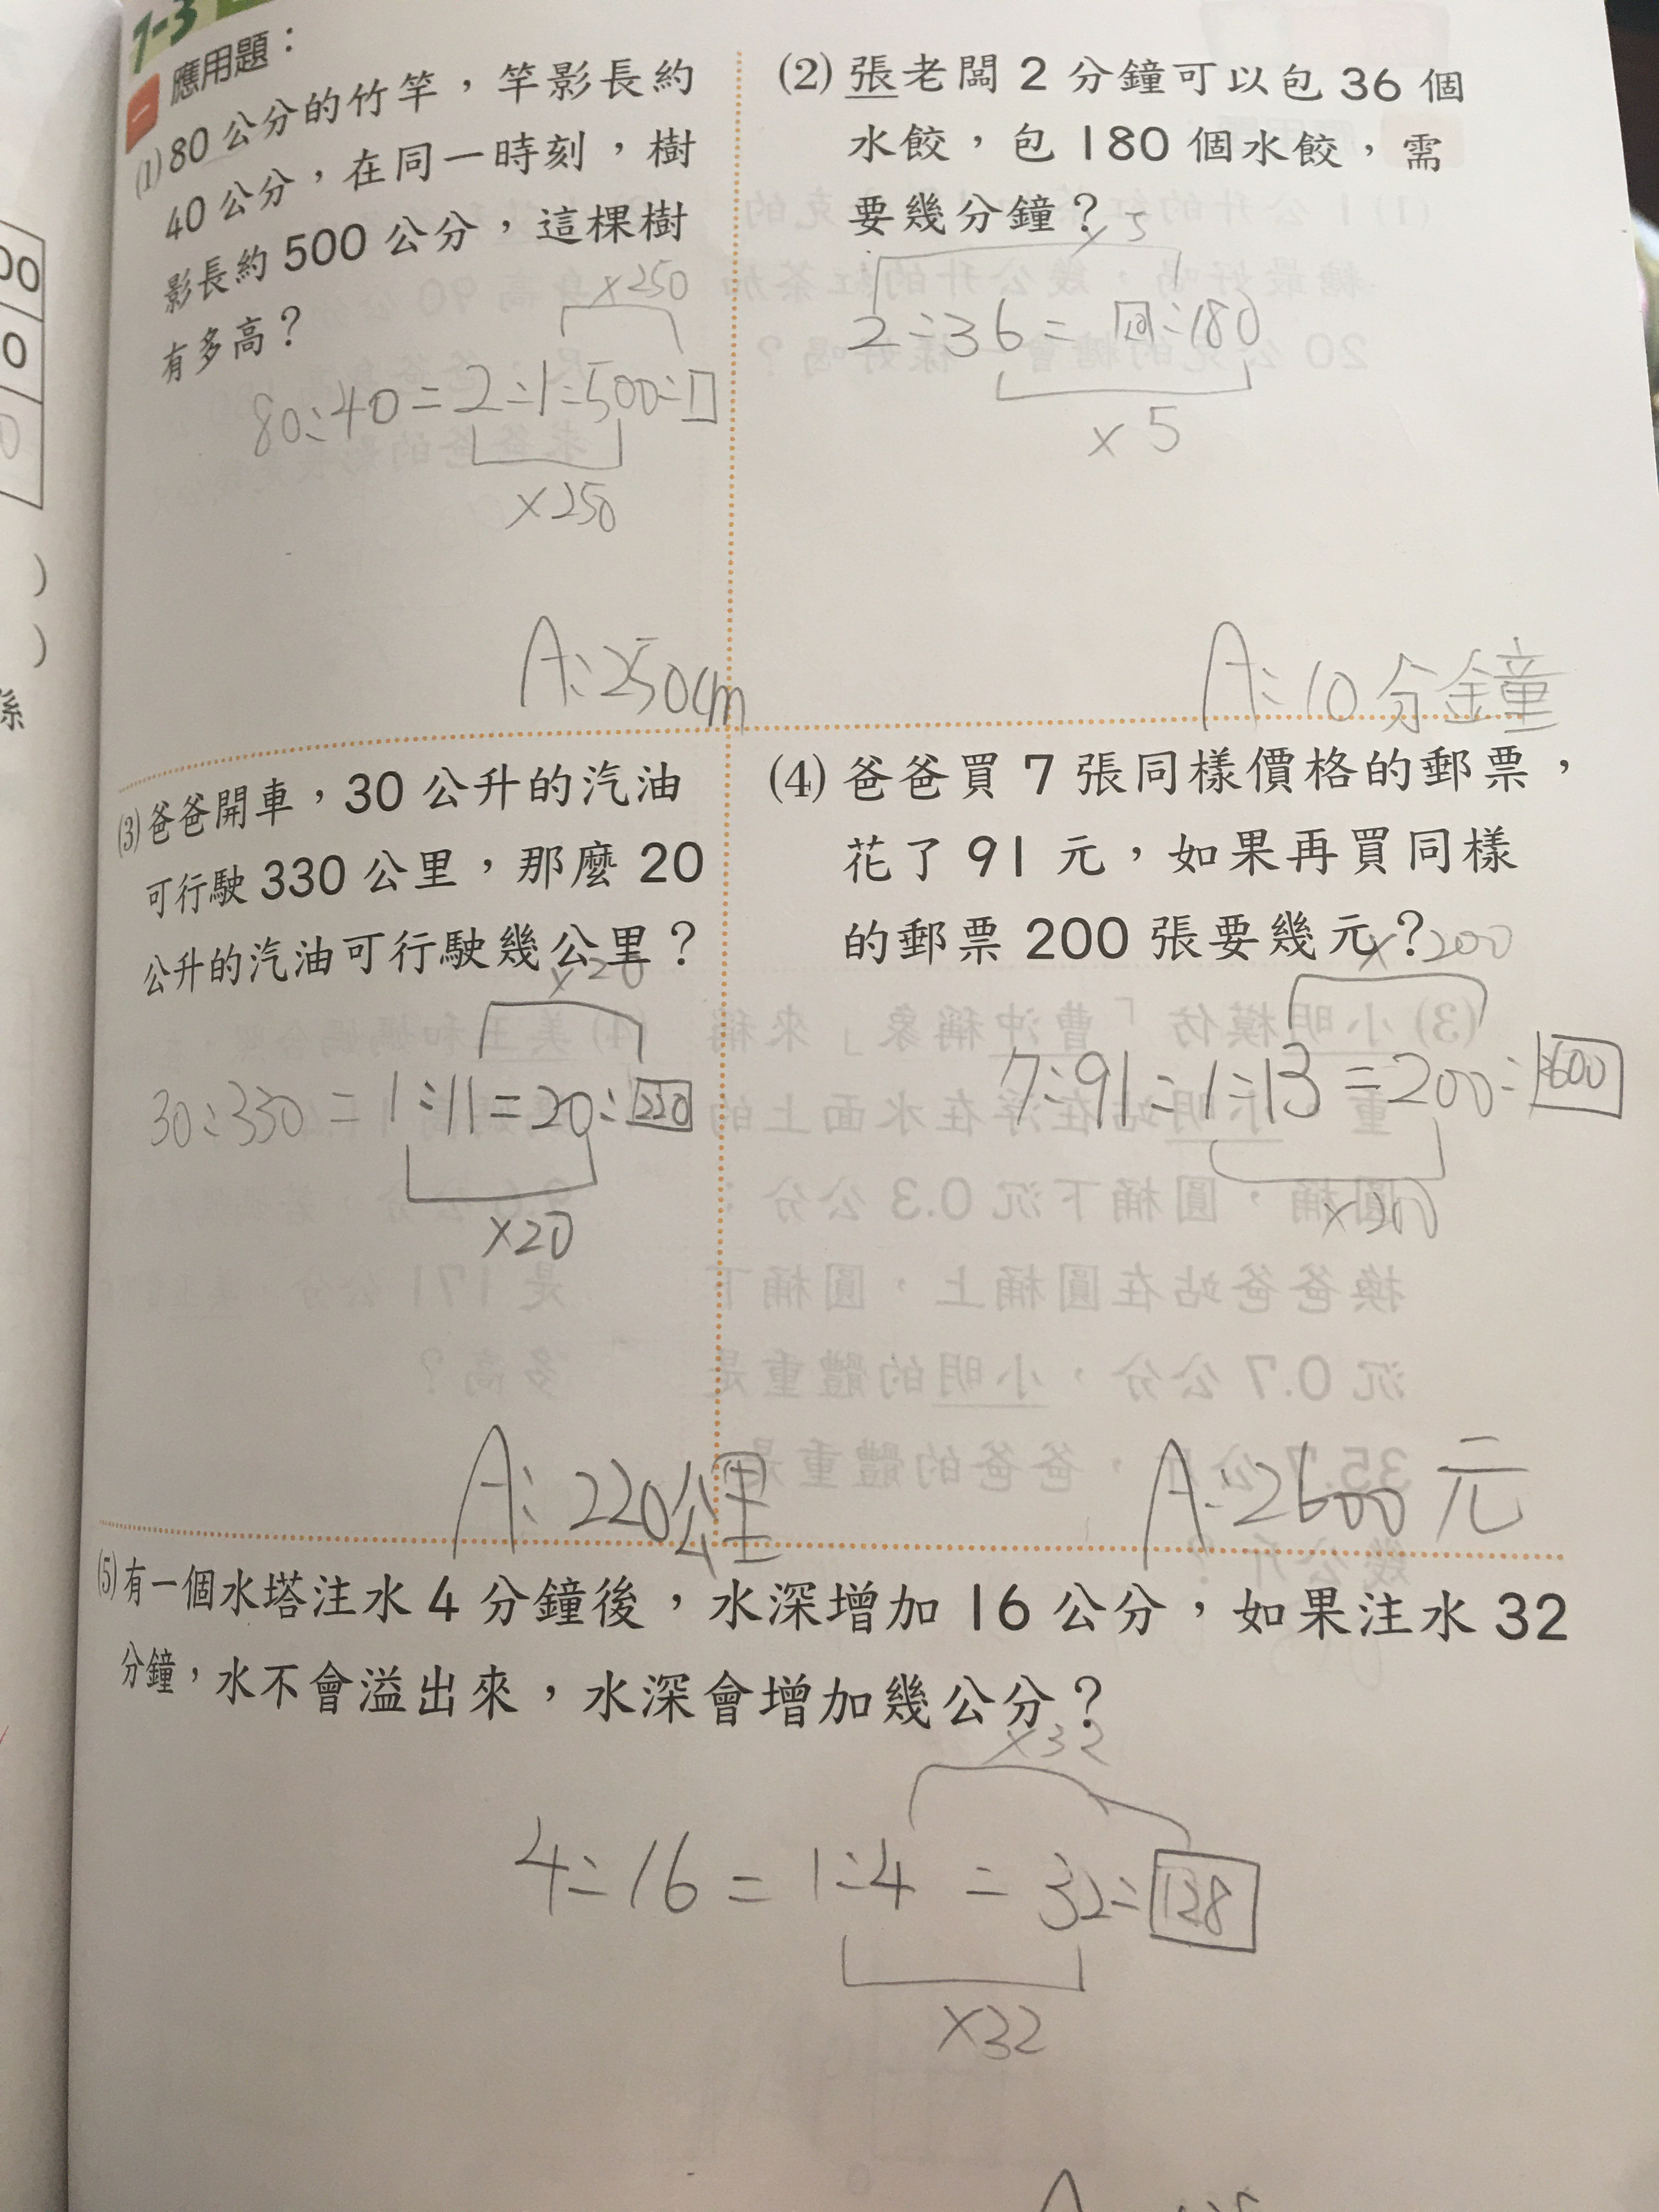 7-3
一 應用題：
(1) 80 公分的竹竿，竿影長約
40 公分，在同一時刻，樹
影長約 500 公分，這棵樹
有多高？
×250
80:40=2:1=500:□
×250
A:250cm
(2) 張老闆 2 分鐘可以包 36 個
水餃，包 180 個水餃，需
要幾分鐘？
×5
2:36=10:180
×5
A:10分鐘
(3) 爸爸開車，30 公升的汽油
可行駛 330 公里，那麼 20
公升的汽油可行駛幾公里？
×20
30:330=1:11=20:220
×20
A:220公里
(4) 爸爸買 7 張同樣價格的郵票，
花了 91 元，如果再買同樣
的郵票 200 張要幾元？
×200
7:91=1:13=200:2600
×200
A:2600元
(5) 有一個水塔注水 4 分鐘後，水深增加 16 公分，如果注水 32
分鐘，水不會溢出來，水深會增加幾公分？
×32
4:16=1:4=32:128
×32